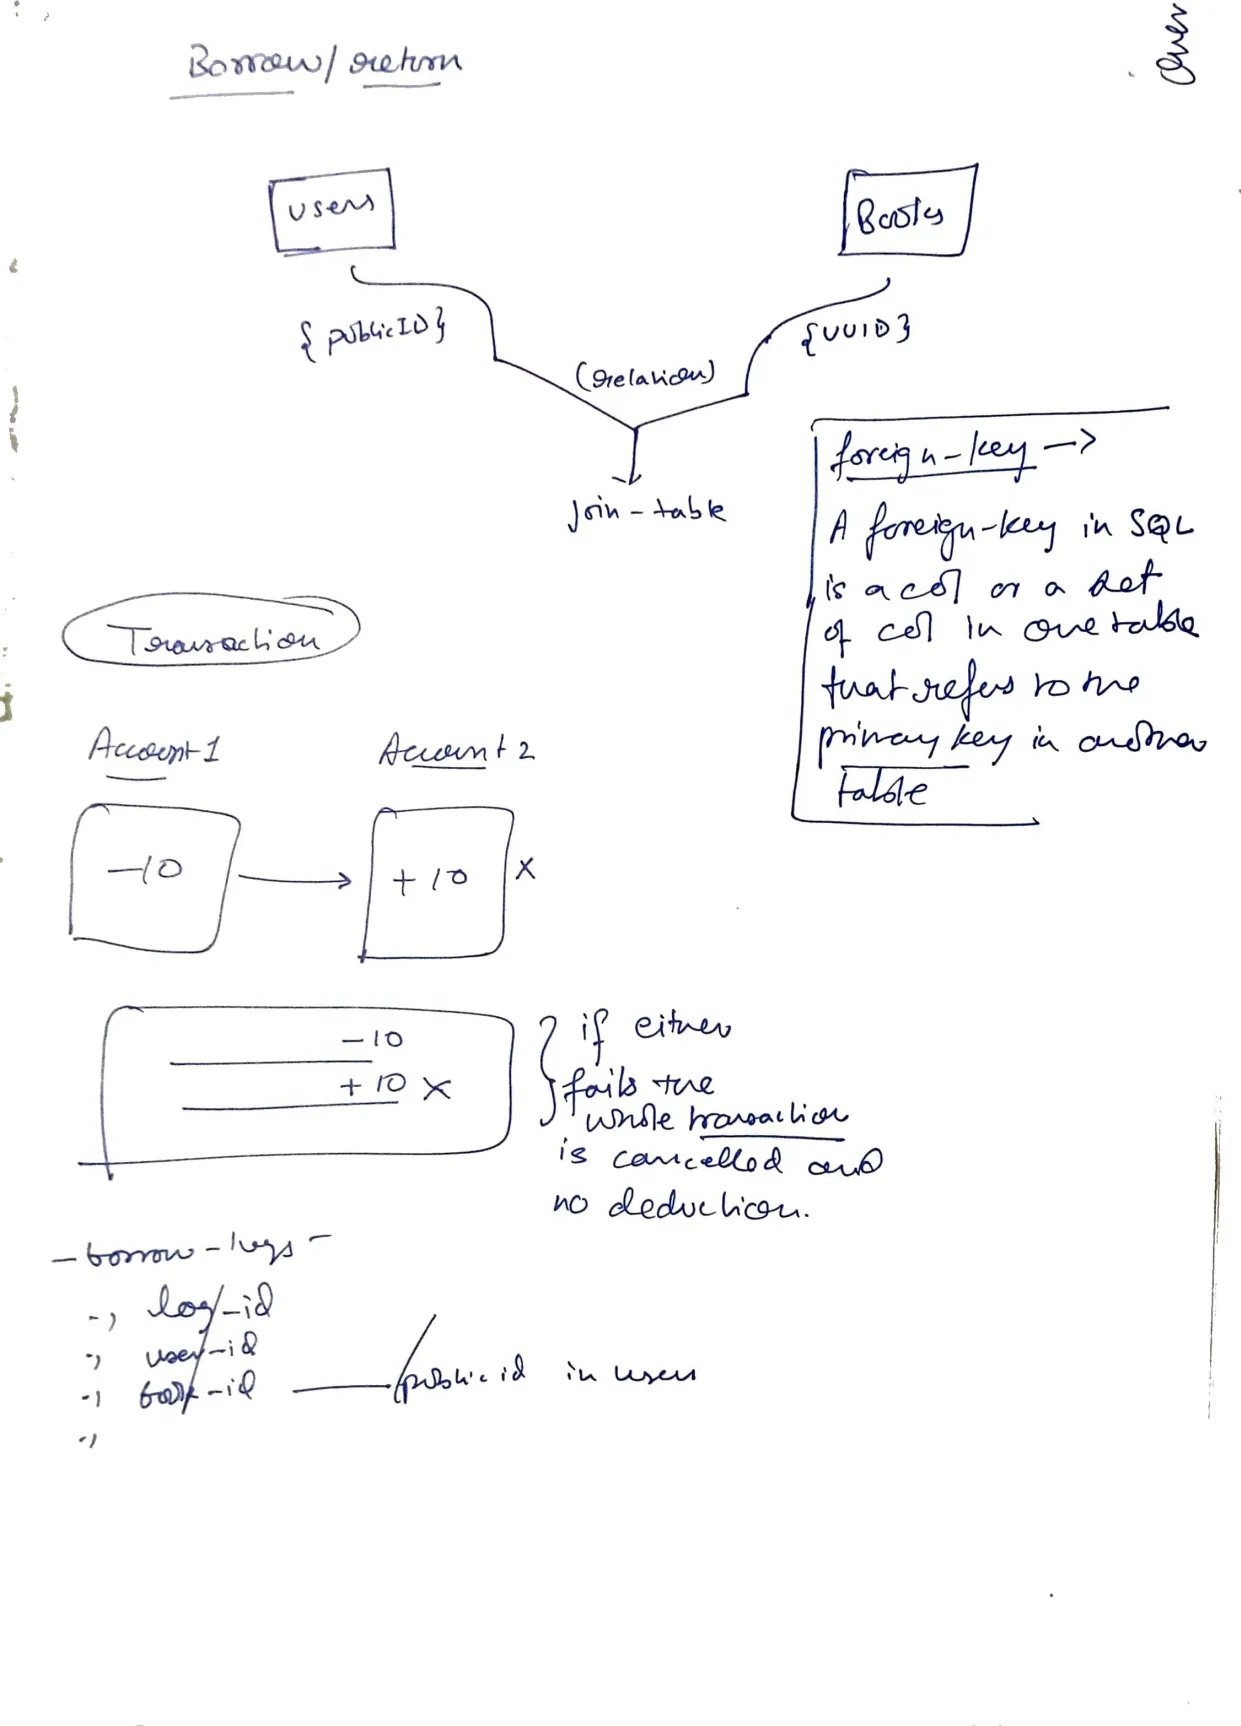 Borrow/return
Over
Users
Books
{publicID}
{UUID}
(relation)
Join-table
foreign-key ->
A foreign-key in SQL
is a col or a set
of col in one table
that refers to the
primary key in another
table
Transaction
Account 1
Account 2
-10
+10 x
-10
+10 x
if either
fails the
whole transaction
is cancelled and
no deduction.
- borrow-logs -
log-id
user-id
book-id
public id in users